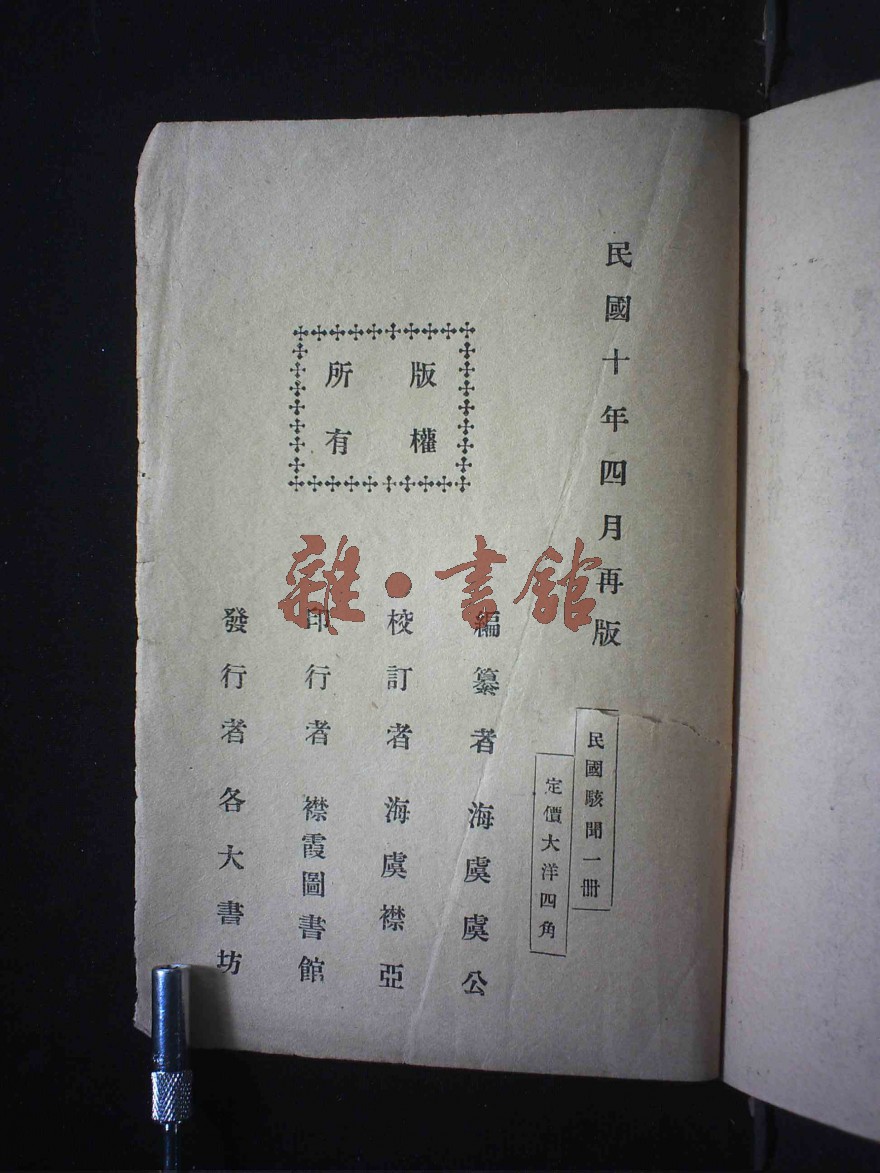 民國十年四月再版
民國駭聞一冊
定價大洋四角
版權
所有
編纂者 海虞虞公
校訂者 海虞襟亞
印行者 襟霞圖書館
發行者 各大書坊
雜·書館